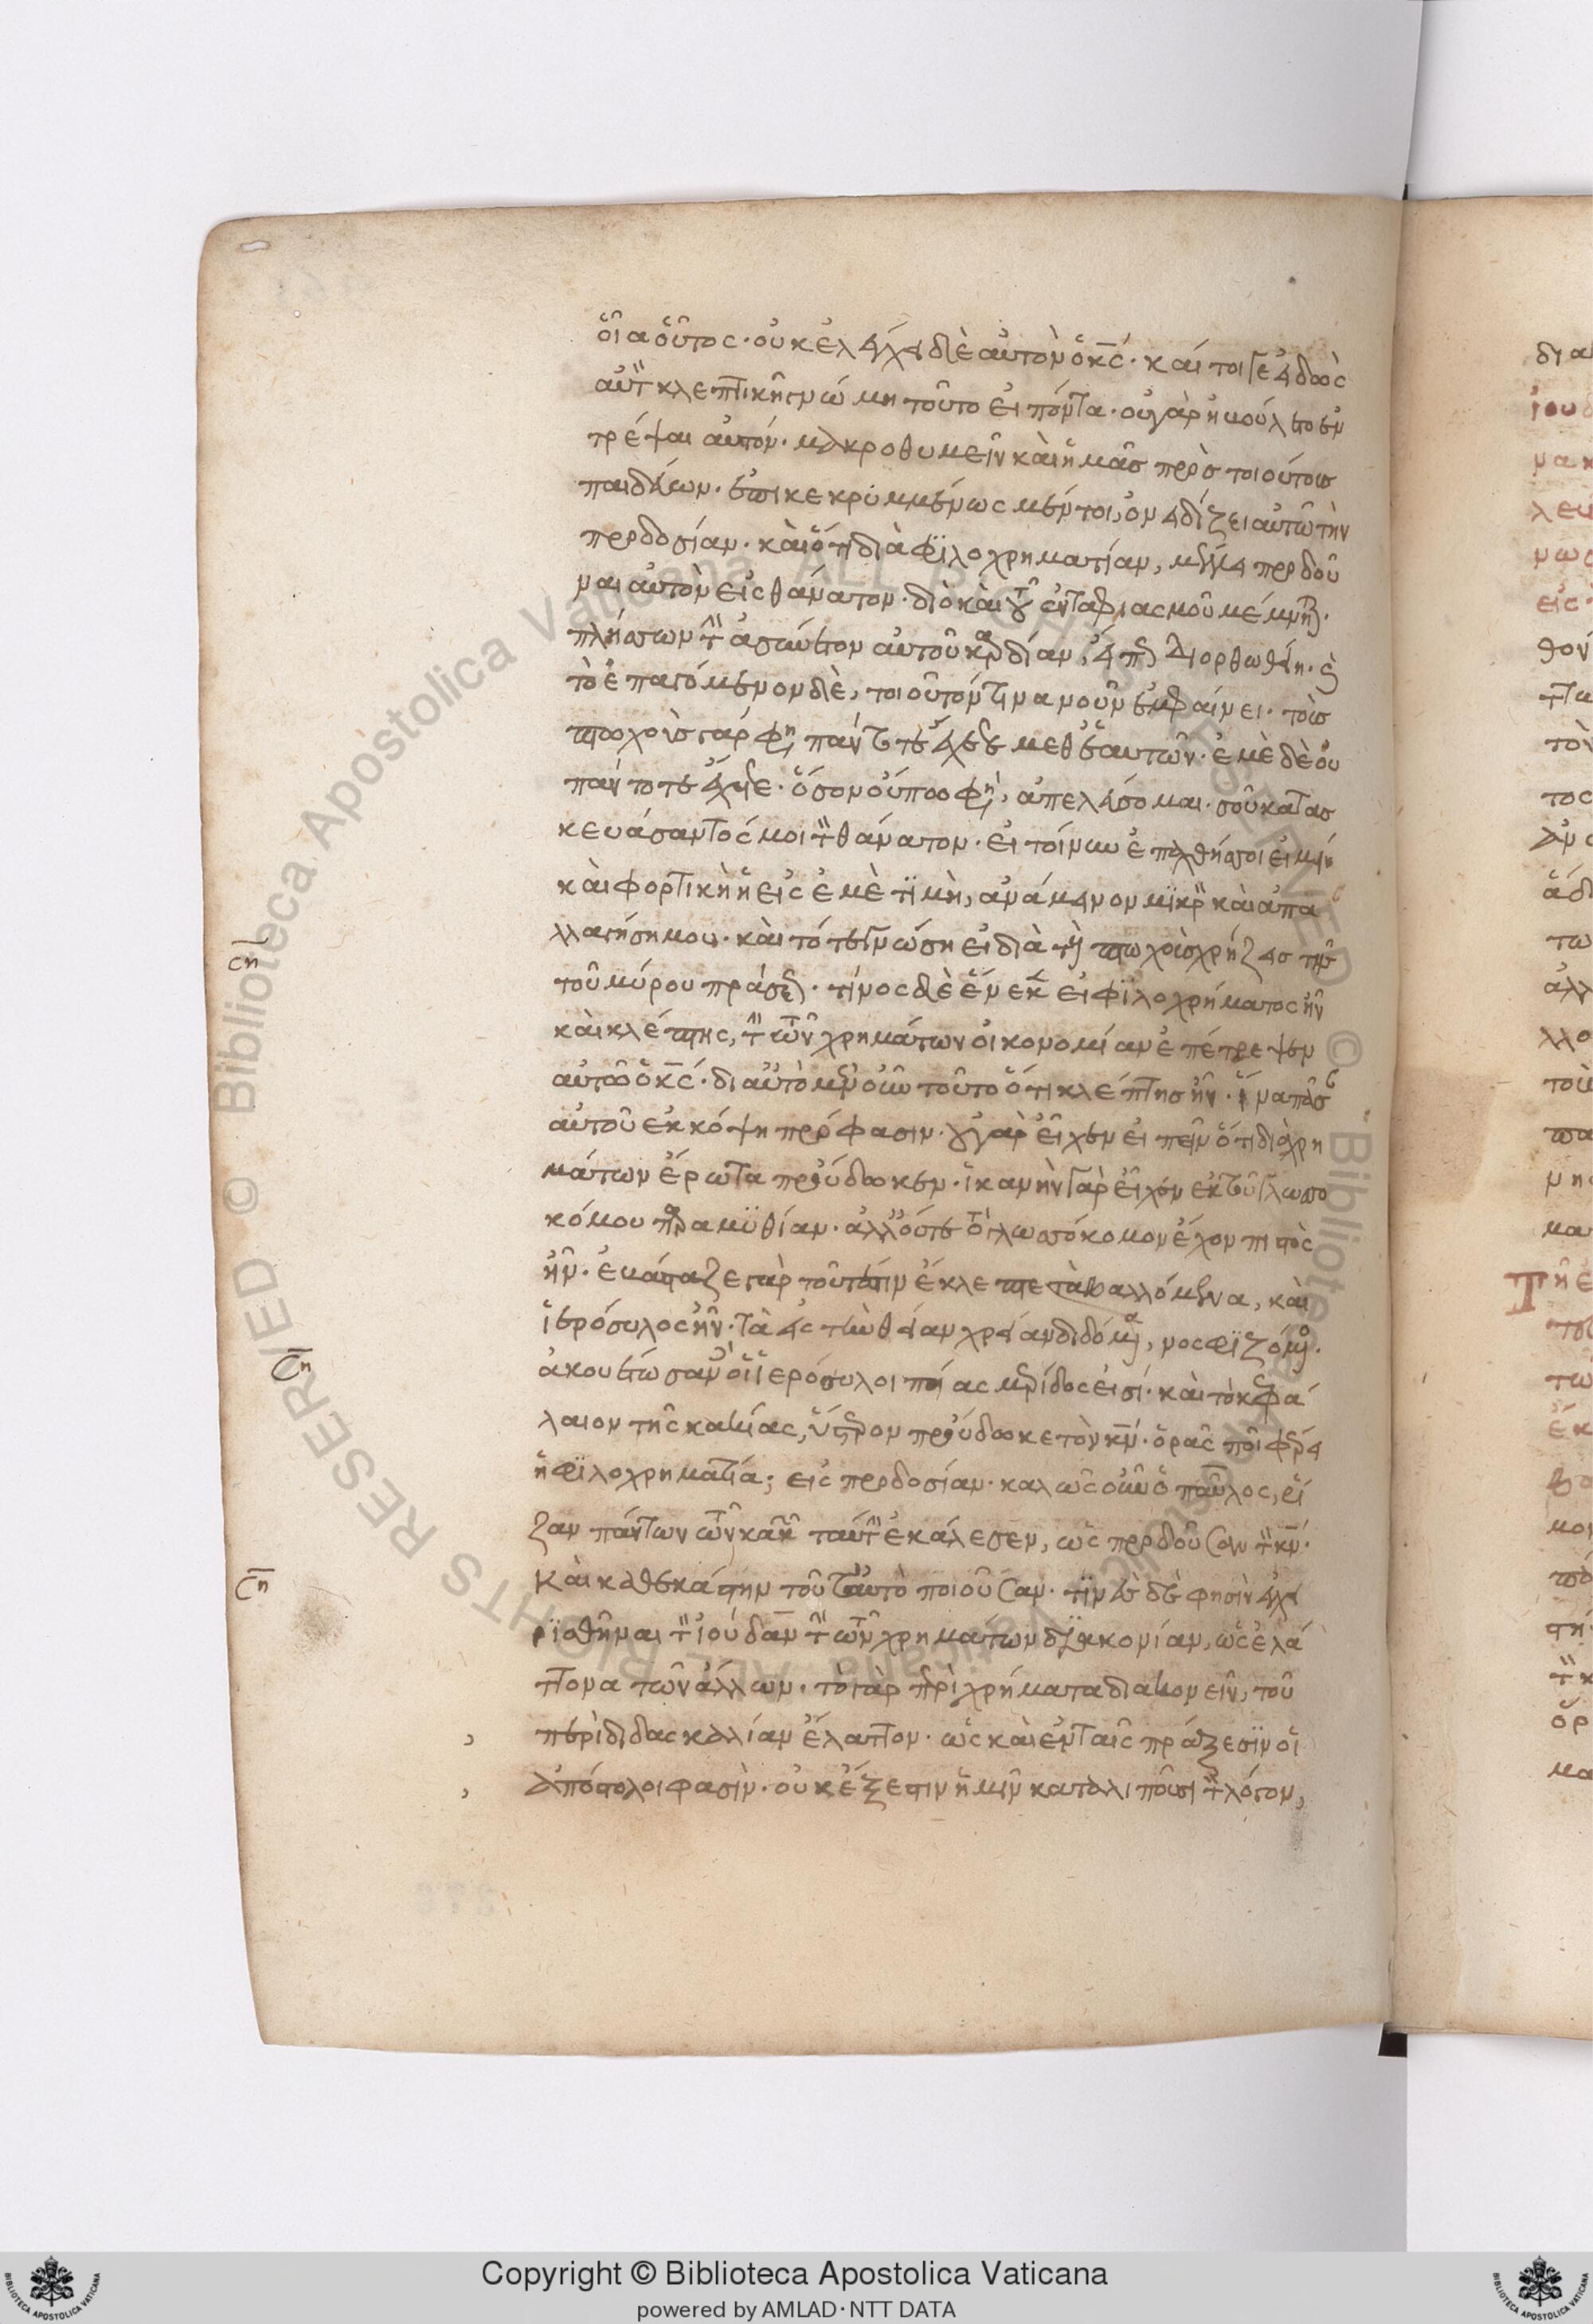 οἷα οὗτος· οὐκ ἐλέγχει δὲ αὐτὸν ὁ κ̅ς̅· καί τοι γε εἰδὼς
αὐτ κλεπτικῇ γνώμῃ τοῦτο εἰπόντα· οὐ γὰρ ἠβούλετο ἐν
τρέψαι αὐτόν· μακροθυμεῖν καὶ ἡμᾶς πρὸς τοιούτους
παιδεύων· ἐπικεκρυμμένως μέντοι, ὀνειδίζει αὐτῷ τὴν
προδοσίαν· καὶ ὅτι διὰ φϊλοχρηματίαν, μέλλει προδοῦ
ναι αὐτὸν εἰς θάνατον· διὸ καὶ τοῦ ἐνταφιασμοῦ μέμνηται·
πλήττων τὴν ἀσύνετον αὐτοῦ καρδίαν, εἴπερ διορθωθείη· καὶ
τὸ ἐπαγόμενον δὲ, τοιοῦτόν τινα νοῦν ἐμφαίνει· τοὺς
πτωχοὺς γάρ φη, πάντοτε ἔχετε μεθ ἑαυτῶν· ἐμὲ δὲ οὐ
πάντοτε ἔχετε· ὅσον οὔπω φη, ἀπελεύσομαι· σοῦ κατασ
κευάσαντός μοι τὸν θάνατον· εἰ τοίνυν ἐπαχθής σοι εἰμὶ
καὶ φορτικὴ ἡ εἰς ἐμὲ τϊμὴ, ἀνάμεινον μϊκρὸν καὶ ἀπα
λλαγήσῃ μου· καὶ τότε γνώσῃ εἰ διὰ τοὺς πτωχοὺς χρῄζεις τῆς
τοῦ μύρου πράσεως· τίνος δὲ ἕνεκεν εἰ φϊλοχρήματος ἦν
καὶ κλέπτης, τὴν τῶν χρημάτων οἰκονομίαν ἐπέτρεψεν
αὐτῷ ὁ κ̅ς̅· δι αὐτὸ μὲν οὖν τοῦτο ὅτι κλέπτης ἦν· ἵνα πᾶσαν
αὐτοῦ ἐκκόψῃ πρόφασιν· οὐ γὰρ εἶχεν εἰπεῖν ὅτι διὰ χρη
μάτων ἔρωτα προύδωκεν· ἱκανὴν γὰρ εἶχεν ἐκ τοῦ γλωσσο
κόμου παραμϋθίαν· ἀλλ οὔτε τὸ γλωσσόκομον ἔχων πιστὸς
ἦν· ἐβάσταζε γὰρ τουτέστιν ἔκλεπτε τὰ βαλλόμενα, καὶ
ἱερόσυλος ἦν· τὰ εἰς τῶ θείαν χρείαν διδόμενα, νοσφϊζόμενος·
ἀκουέτωσαν οἱ ἱερόσυλοι ποίας μερίδος εἰσί· καὶ τὸ κεφά
λαιον τῆς κακίας, ὕστερον προύδωκε τὸν κ̅ν̅· ὁρᾷς ποῖ φέρει
ἡ φϊλοχρηματία; εἰς προδοσίαν· καλῶς οὖν ὁ παῦλος, ῥί
ζαν πάντων τῶν κακῶν ταύτην ἐκάλεσεν, ὡς προδοῦσαν τὸν κ̅ν̅·
Καὶ καθ ἑκάστην τοῦτ αὐτὸ ποιοῦσαν· τϊνὲς δέ φησὶν ἐγχει
ρϊσθῆναι τὸν ἰούδαν τὴν τῶν χρημάτων διακονίαν, ὡς ἐλά
ττονα τῶν ἄλλων· τὸ γὰρ περὶ χρήματα διακονεῖν, τοῦ
περὶ διδασκαλίαν ἔλαττον· ὡς καὶ ἐν ταῖς πράξεσϊν οἱ
ἀπόστολοι φασὶν· οὐκ ἔξεστιν ἡμῖν καταλιποῦσι τὸν λόγον,
ση
ση
ση
Copyright © Biblioteca Apostolica Vaticana
powered by AMLAD·NTT DATA